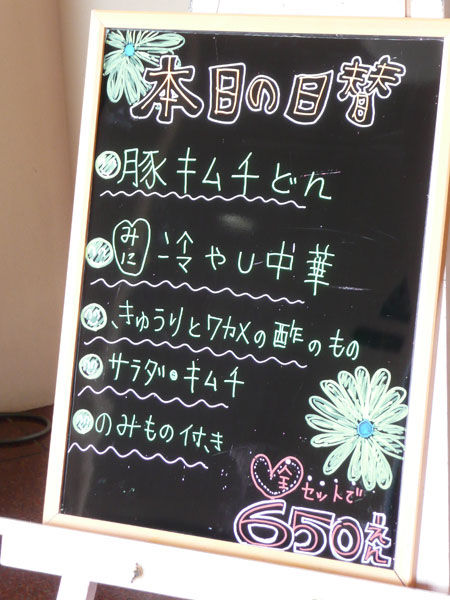 本日の日替
豚キムチどん
みに 冷やし中華
きゅうりとワカメの酢のもの
サラダ・キムチ
のみもの付き
全セットで
650えん